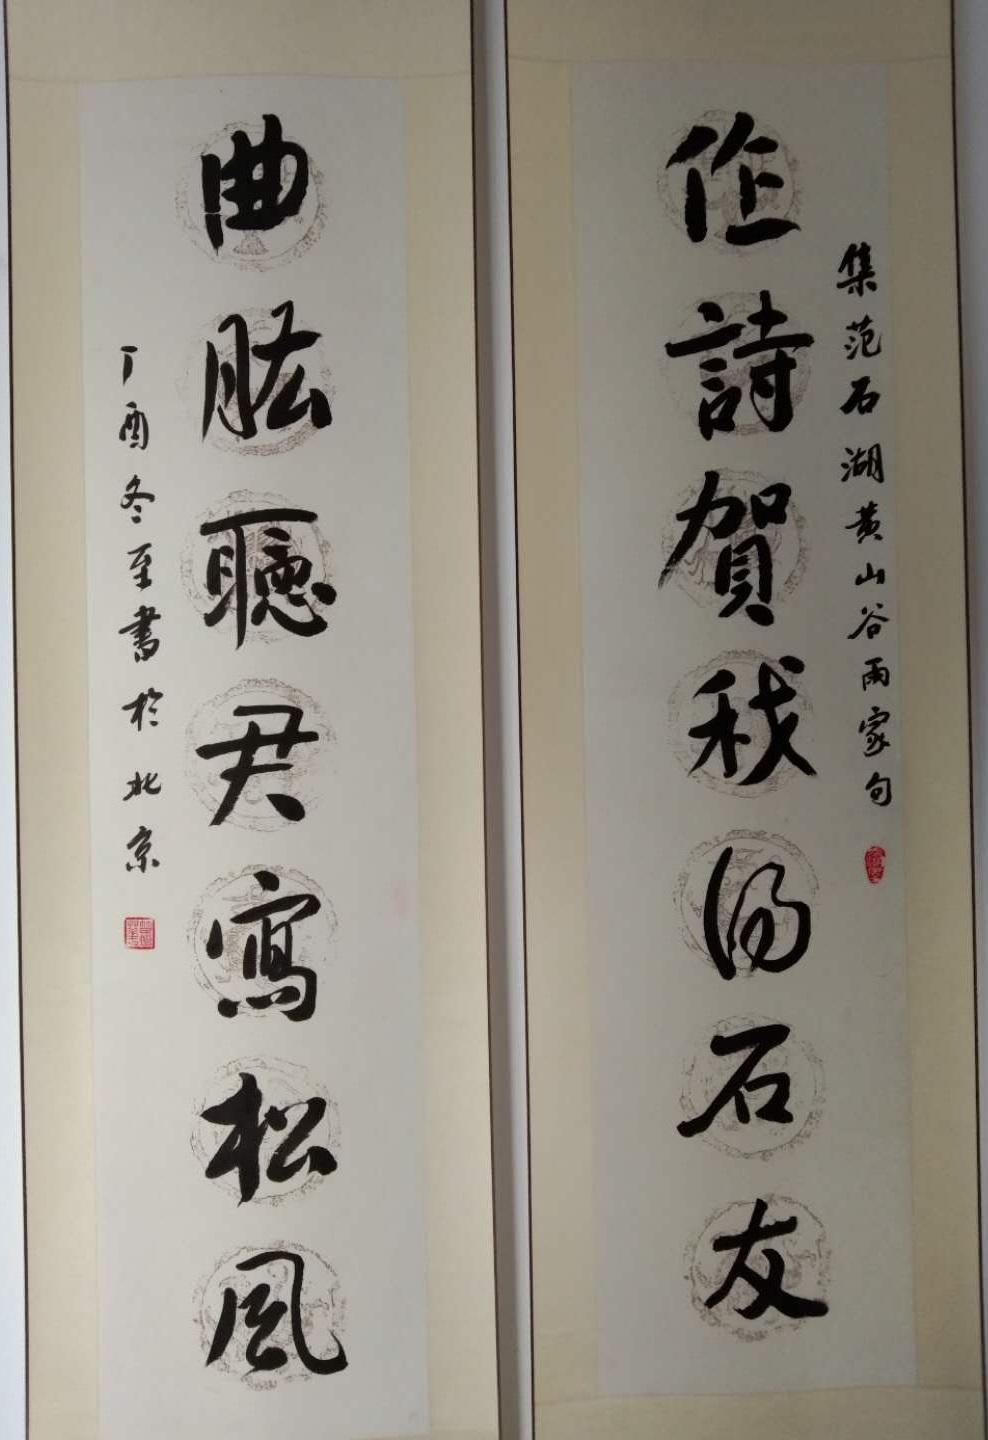 集范石湖黄山谷兩家句
作詩賀我得石友
曲肱聽君寫松風
丁酉冬至書於北京